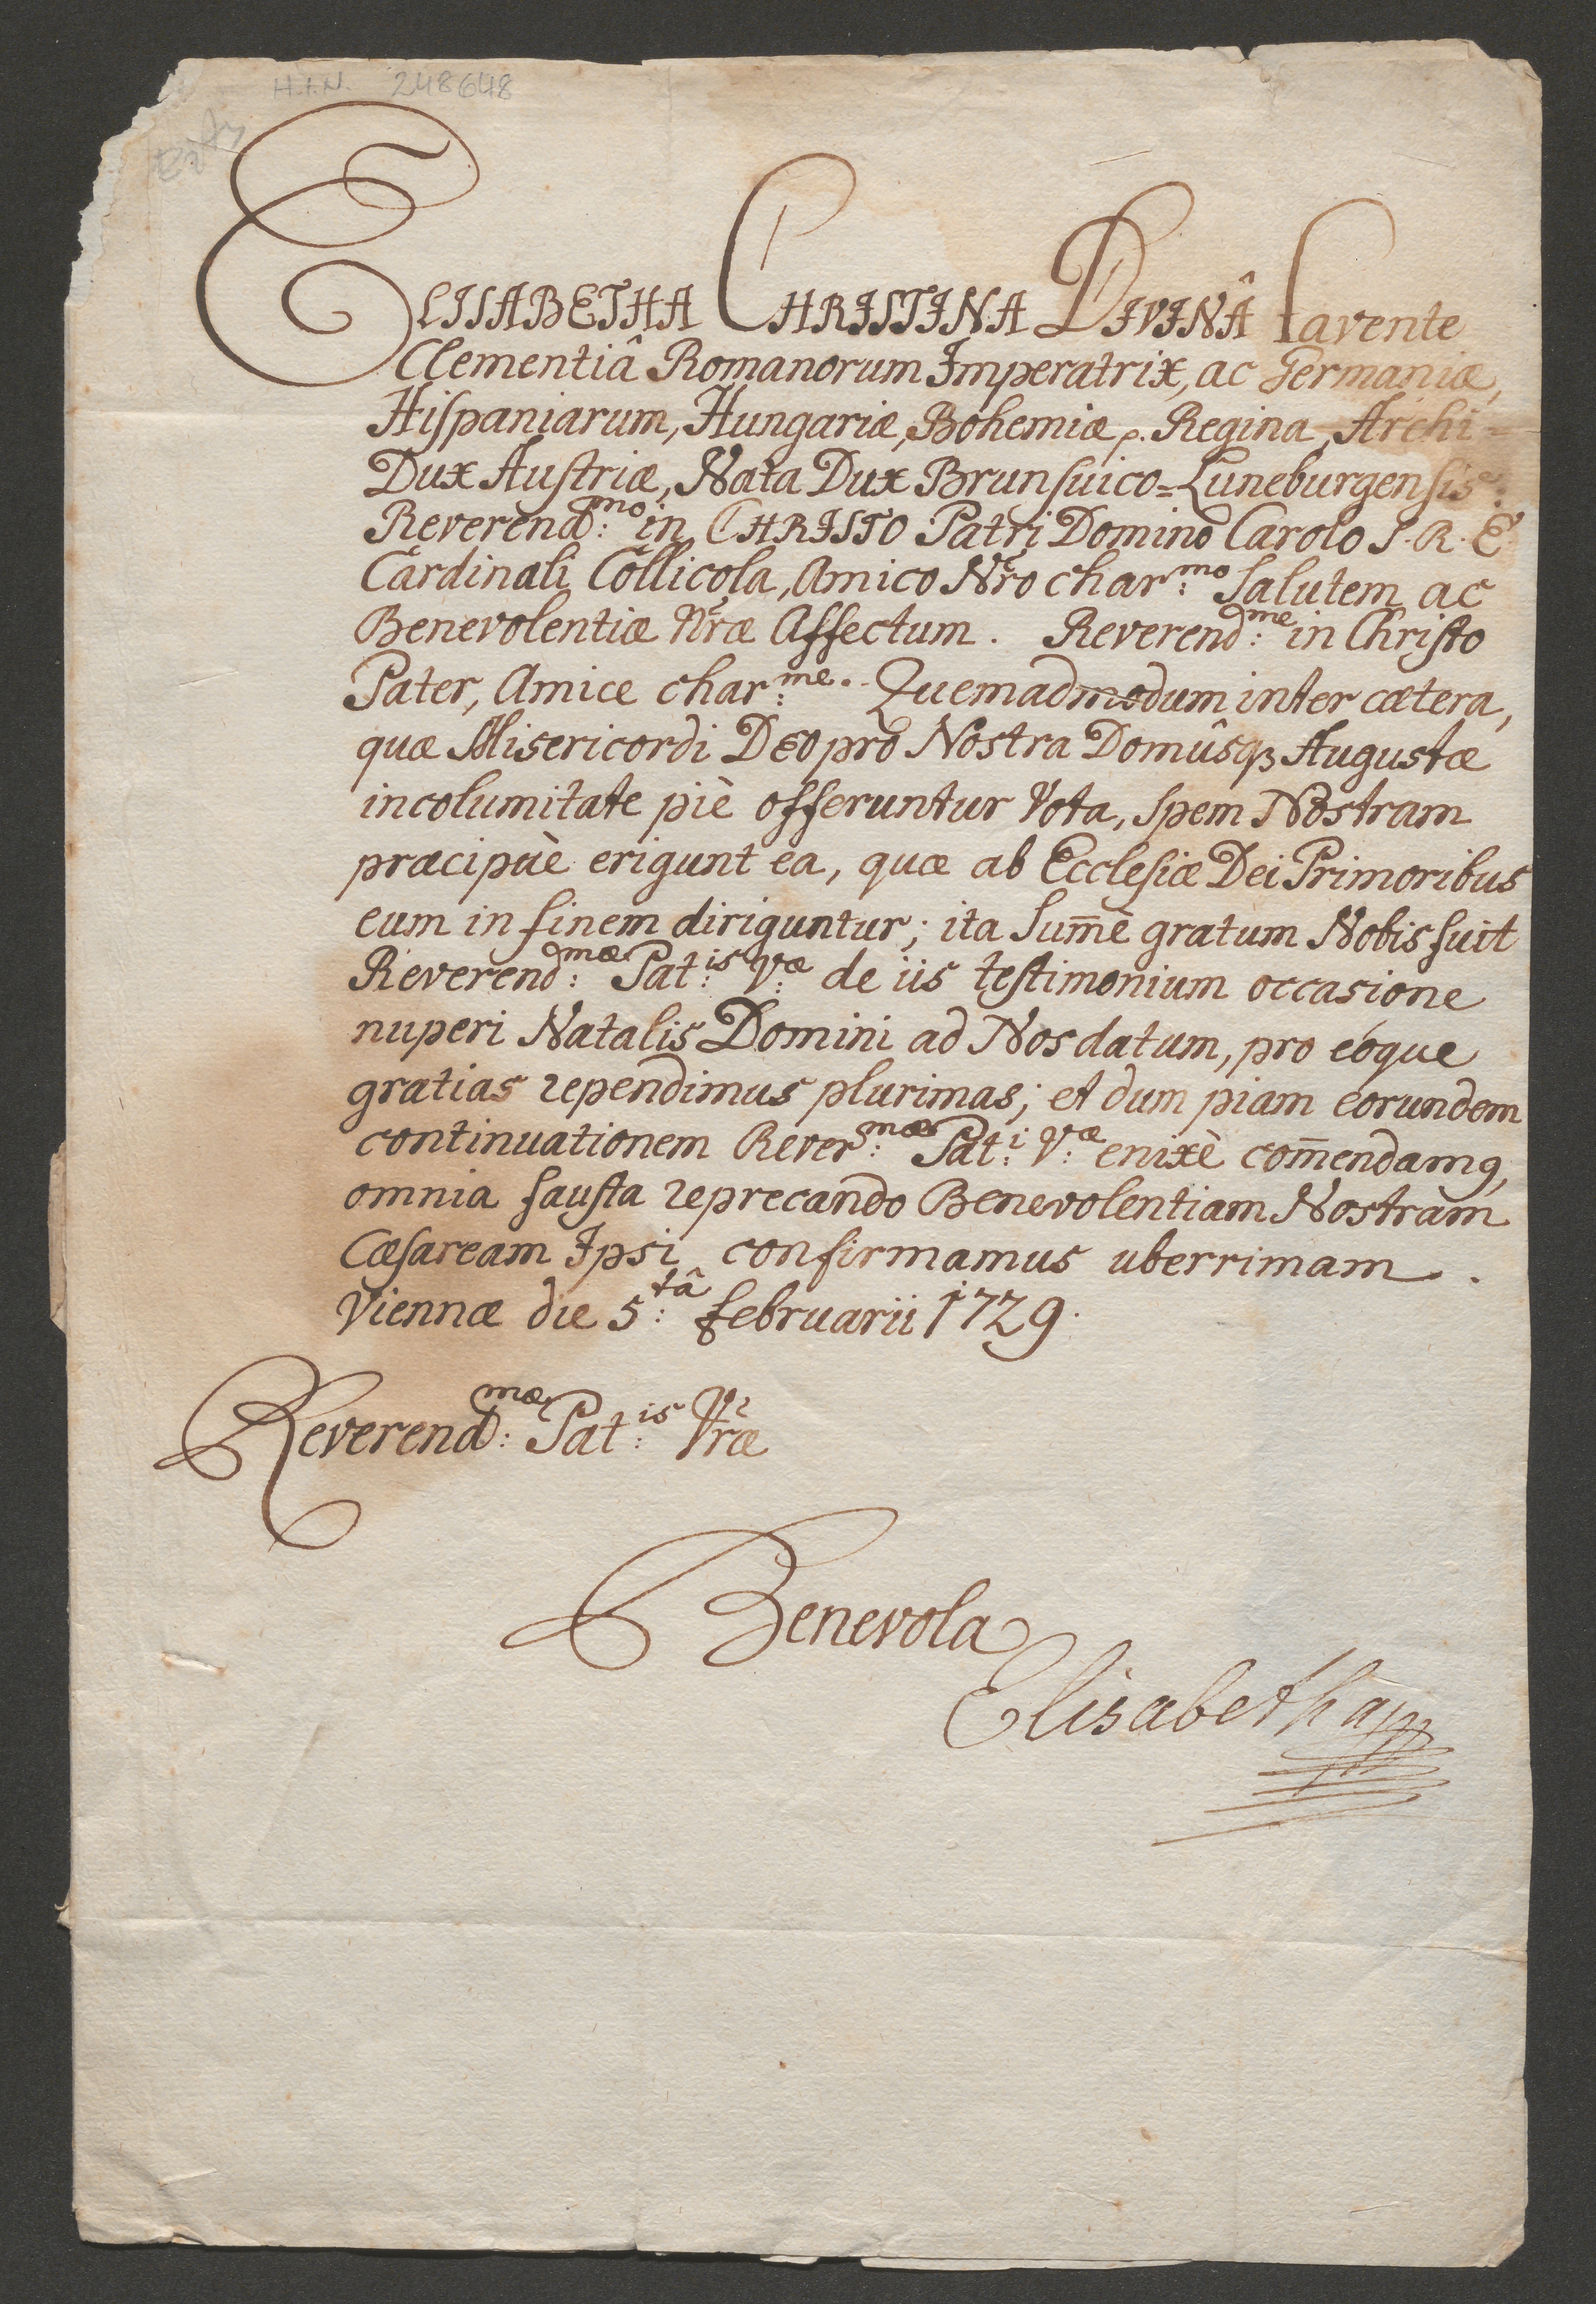 H.I.N. 248648
ELISABETHA CHRISTINA DIVINÂ favente
Clementiâ Romanorum Imperatrix, ac Germaniæ,
Hiſpaniarum, Hungariæ, Bohemiæ, Regina, Archi=
Dux Auſtriæ, Nata Dux Brunſuico=Luneburgenſis:
Reverend:mo in CHRISTO Patri Domino Carolo S. R. E
Cardinali Collicola, Amico Nr̃o char:mo Salutem ac
Benevolentiæ Nr̃æ Affectum. Reverend:me in Chriſto
Pater, Amice char:me. Quemadmodum inter cætera,
quæ Misericordi DEO pro Nostra Domûsqꝫ Augustæ
incolumitate piè offeruntur Vota, spem Nostram
præcipuè erigunt ea, quæ ab Eccleſiæ Dei Primoribus
eum in finem diriguntur; ita Sum̄è gratum Nobis fuit
Reverend:mæ Pat:is V:æ de iis teſtimonium occasione
nuperi Natalis Domini ad Nos datum, pro eòque
gratias rependimus plurimas; et dum piam eorundem
continuationem Rever:mæ Pat:i V:æ enixè com̄endamꝰ,
omnia fauſta reprecando Benevolentiam Nostram
Cæſaream Ipsi confirmamus uberrimam.
Viennæ die 5:tâ februarii 1729.
Reverend:mæ Pat:is Vr̃æ
Benevola
Elisabetha